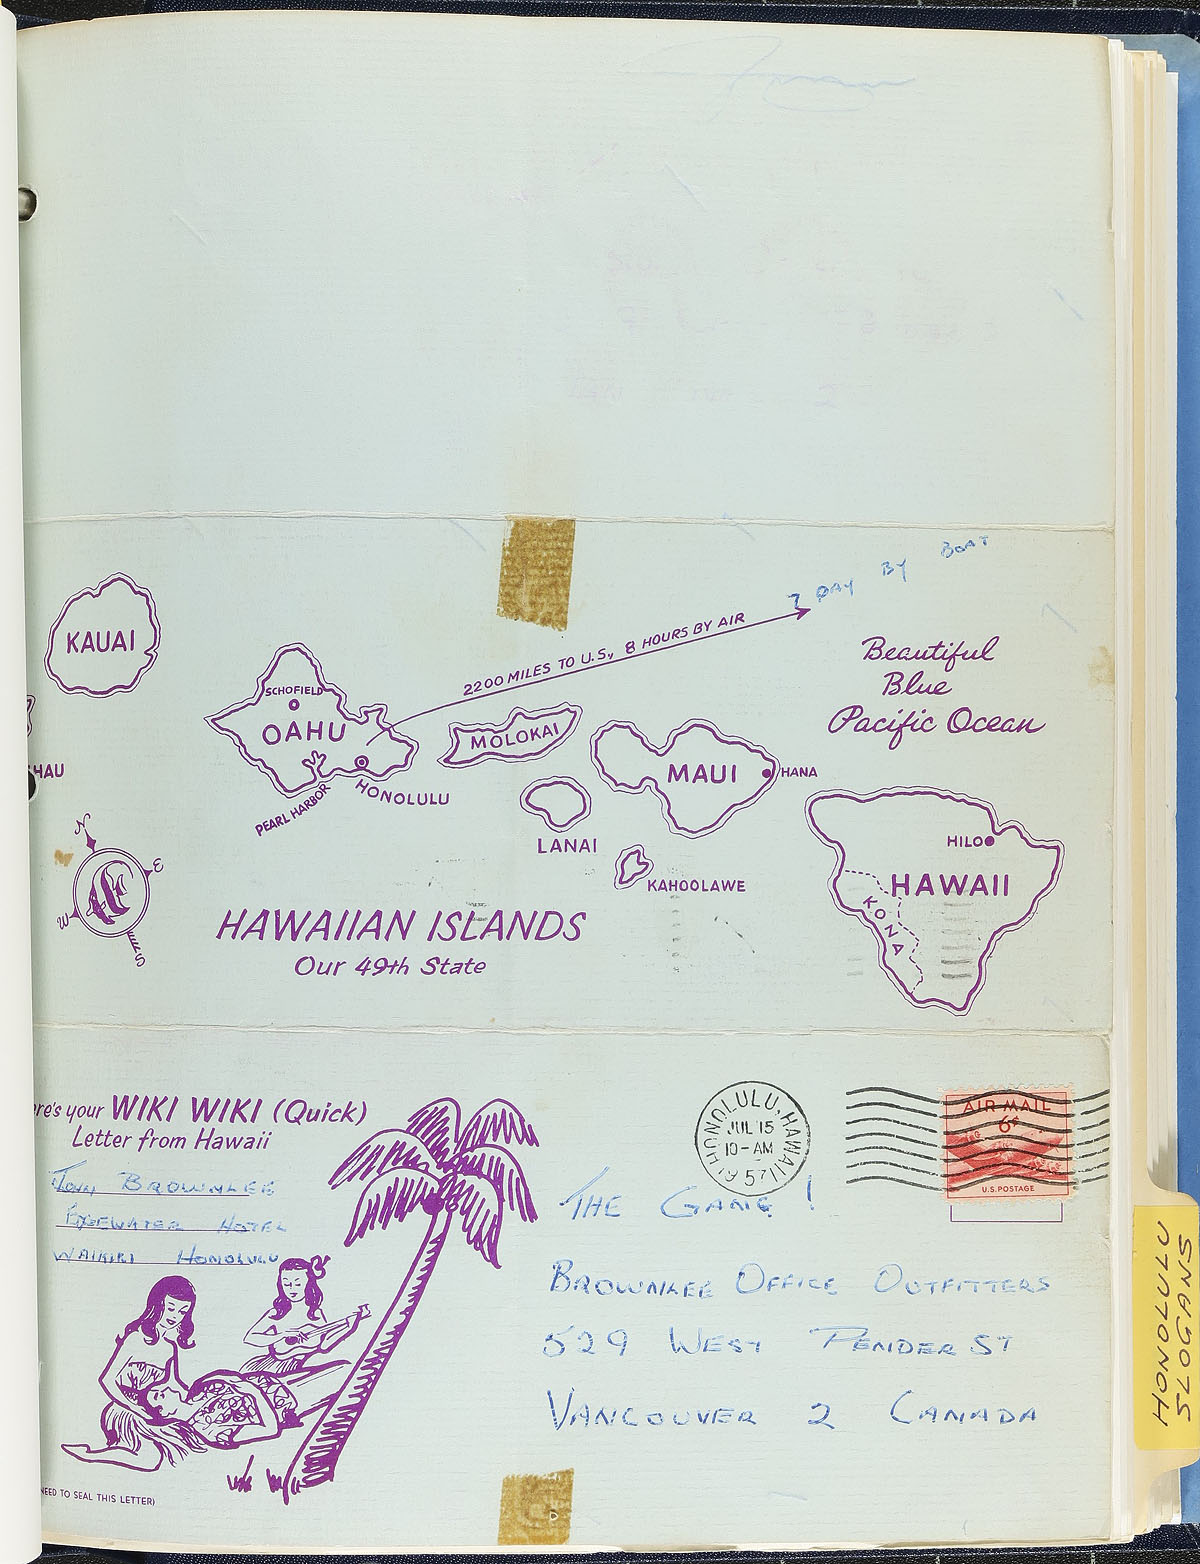 DAY BY BOAT
2200 MILES TO U.S., 8 HOURS BY AIR
KAUAI
SCHOFIELD
OAHU
PEARL HARBOR
HONOLULU
MOLOKAI
LANAI
MAUI
HANA
KAHOOLAWE
Beautiful
Blue
Pacific Ocean
HILO
HAWAII
KONA
HAU
N
E
W
S
HAWAIIAN ISLANDS
Our 49th State
ere's your WIKI WIKI (Quick)
Letter from Hawaii
TOM BROWNLEE
EDGEWATER HOTEL
WAIKIKI HONOLULU
HONOLULU, HAWAII
JUL 15
10-AM
57
AIR MAIL
6¢
U.S. POSTAGE
THE GANG!
BROWNLEE OFFICE OUTFITTERS
529 WEST PENDER ST
VANCOUVER 2 CANADA
NEED TO SEAL THIS LETTER)
HONOLULU
SLOGANS